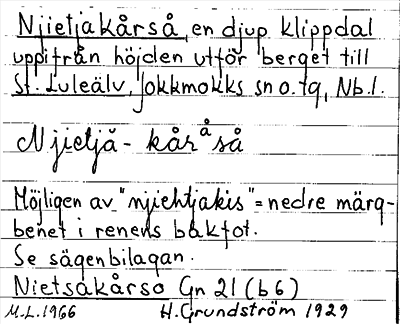 Njietjakårså, en djup klippdal
uppifrån höjden utför berget till
St. Luleälv, Jokkmokks sn o. tg, Nb.l.
Njietjǎ-kåråså
Möjligen av "njiehtjakis" = nedre märg-
benet i renens bakfot.
Se sägenbilagan.
Nietsakårso Gn 21 (b6)
M.L. 1966 H. Grundström 1929